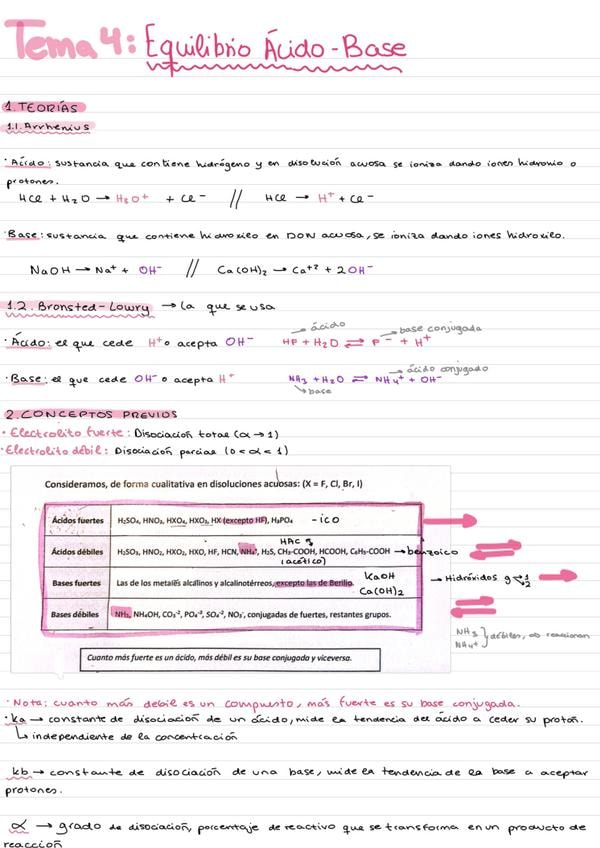 Tema 4: Equilibrio Ácido-Base
1. TEORÍAS
1.1. Arrhenius
· Ácido: sustancia que contiene hidrógeno y en disolución acuosa se ioniza dando iones hidronio o
protones.
HCl + H₂O → H₃O⁺ + Cl⁻ // HCl → H⁺ + Cl⁻
· Base: sustancia que contiene hidroxilo en DON acuosa, se ioniza dando iones hidroxilo.
NaOH → Na⁺ + OH⁻ // Ca(OH)₂ → Ca⁺² + 2OH⁻
1.2. Bronsted-Lowry → la que se usa
ácido base conjugada
· Ácido: el que cede H⁺ o acepta OH⁻ HF + H₂O ⇄ F⁻ + H⁺
ácido conjugado
· Base: el que cede OH⁻ o acepta H⁺ NH₃ + H₂O ⇄ NH₄⁺ + OH⁻
base
2. CONCEPTOS PREVIOS
· Electrolito fuerte: Disociación total (α → 1)
· Electrolito débil: Disociación parcial (0 < α < 1)
Consideramos, de forma cualitativa en disoluciones acuosas: (X = F, Cl, Br, I)
Ácidos fuertes H₂SO₄, HNO₃, HXO₄, HXO₃, HX (excepto HF), H₃PO₄ -ico
HAC
Ácidos débiles H₂SO₃, HNO₂, HXO₂, HXO, HF, HCN, NH₄⁺, H₂S, CH₃-COOH, HCOOH, C₆H₅-COOH → benzoico
(acético)
Bases fuertes Las de los metales alcalinos y alcalinotérreos, excepto las de Berilio. KaOH → Hidróxidos g 1 2
Ca(OH)₂
Bases débiles NH₃, NH₄OH, CO₃⁻², PO₄⁻³, SO₄⁻², NO₃⁻, conjugadas de fuertes, restantes grupos.
NH₃
NH₄⁺ } débiles, reaccionan
Cuanto más fuerte es un ácido, más débil es su base conjugada y viceversa.
· Nota: cuanto más debil es un compuesto, más fuerte es su base conjugada.
· ka → constante de disociación de un ácido, mide la tendencia del ácido a ceder su protón.
↳ independiente de la concentración
kb → constante de disociación de una base, mide la tendencia de la base a aceptar
protones.
α → grado de disociación, porcentaje de reactivo que se transforma en un producto de
reacción